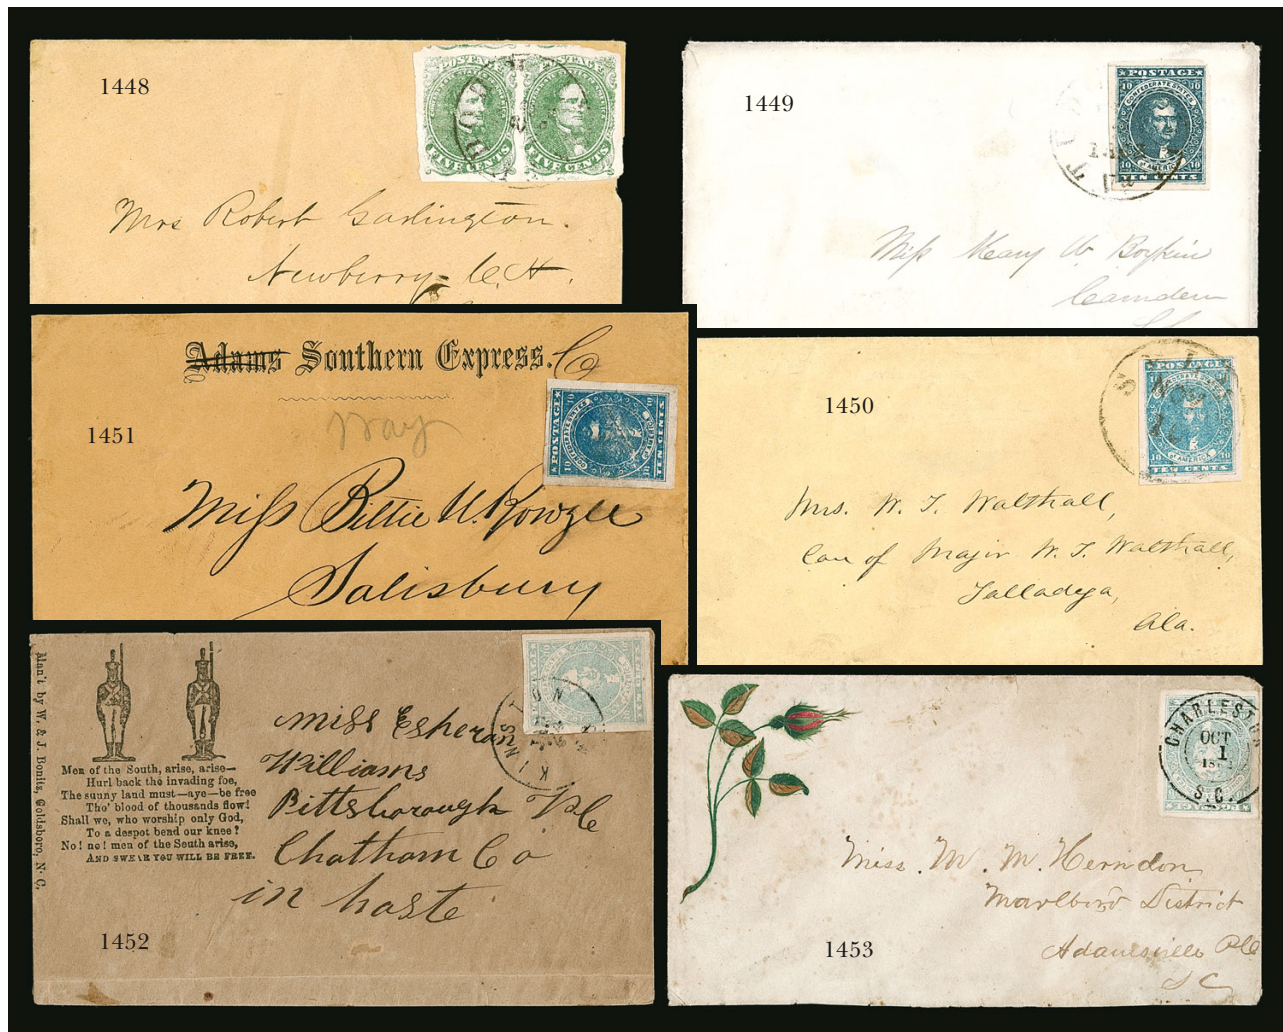 1448
POSTAGE POSTAGE
FIVE CENTS FIVE CENTS
Mrs Robert Garlington.
Newberry C. H.
1449
POSTAGE
10 10
CONFEDERATE STATES
OF AMERICA
10 10
TEN CENTS
Miss Mary W. Boykin
Camden
Adams Southern Express. Co
Way
1451
POSTAGE
TEN CENTS
Miss Bettie U. Rowzee
Salisbury
1450
POSTAGE
NOV
10 10
OF AMERICA
TEN CENTS
Mrs. W. T. Walthall,
Care of Major W. T. Walthall,
Talladega,
Ala.
Man't by W. & J. Bonitz, Goldsboro, N. C.
Men of the South, arise, arise—
Hurl back the invading foe,
The sunny land must—aye—be free
Tho' blood of thousands flow!
Shall we, who worship only God,
To a despot bend our knee?
No! no! men of the South arise,
AND SWEAR YOU WILL BE FREE.
KINSTON
Miss Esheran
Williams
Pittsborough
Chatham Co
in haste
1452
CHARLESTON
OCT
1
S.C.
Miss. M. M. Herndon
Marlboro District
Adamsville P.O
S C
1453